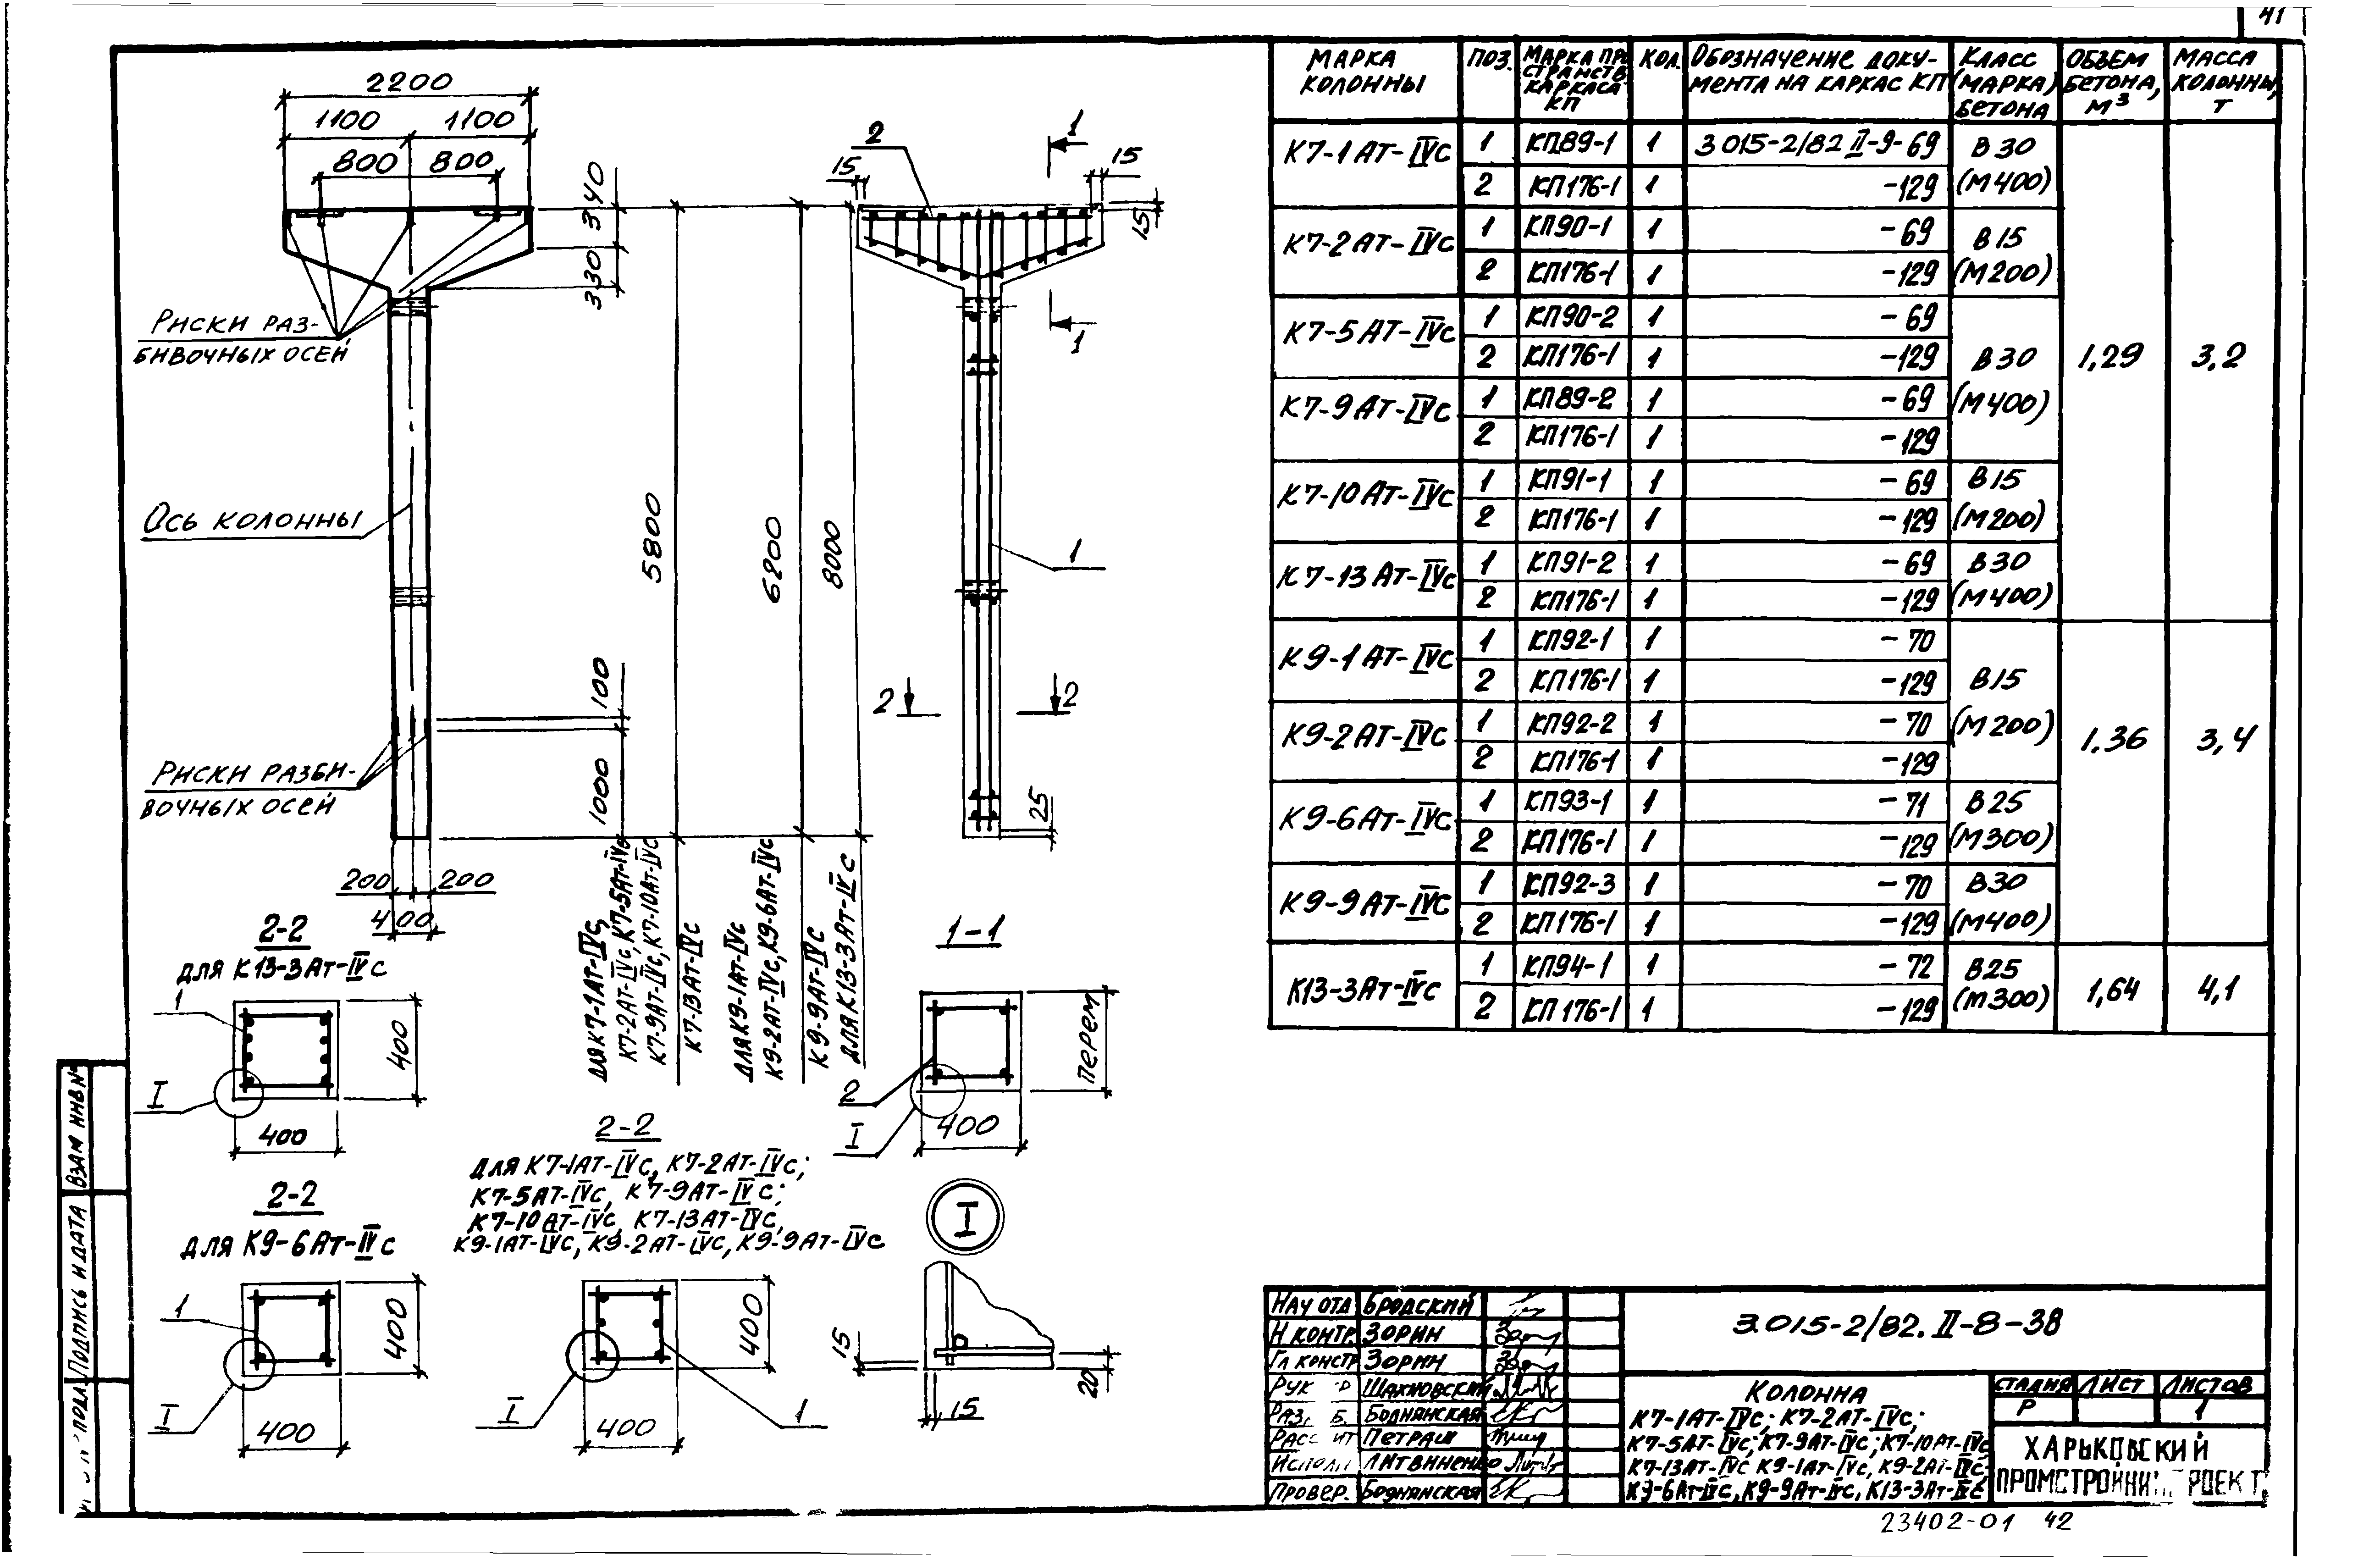 41
2200
1100 1100
800 800
340
330
Риски раз-
бивочных осей
Ось колонны
5800
6200
8000
100
1000
Риски разби-
вочных осей
200 200
400
для К7-1Ат-IVс,
К7-2Ат-IVс, К7-5Ат-IVс
К7-9Ат-IVс, К7-10Ат-IVс
К7-13Ат-IVс
для К9-1Ат-IVс
К9-2Ат-IVс, К9-6Ат-IVс
К9-9Ат-IVс
для К13-3Ат-IVс
2
1
15
15
15
1
1
2 2
25
2-2
для К13-3Ат-IVс
1
I
400
400
2-2
для К9-6Ат-IVс
1
I
400
400
2-2
для К7-1Ат-IVс, К7-2Ат-IVс;
К7-5Ат-IVс, К7-9Ат-IVс;
К7-10Ат-IVс, К7-13Ат-IVс,
К9-1Ат-IVс, К9-2Ат-IVс, К9-9Ат-IVс
I
400
400
1
1-1
2
I
400
перем
I
15
15
20
Марка колонны
Поз.
Марка пространств каркаса КП
Кол.
Обозначение документа на каркас КП
Класс (марка) бетона
Объем бетона, м³
Масса колонны, т
К7-1Ат-IVс 1 КП89-1 1 3 015-2/82 II-9-69 В30
2 КП176-1 1 -129 (М400)
К7-2Ат-IVс 1 КП90-1 1 -69 В15
2 КП176-1 1 -129 (М200)
К7-5Ат-IVс 1 КП90-2 1 -69
2 КП176-1 1 -129 В30 1,29 3,2
К7-9Ат-IVс 1 КП89-2 1 -69 (М400)
2 КП176-1 1 -129
К7-10Ат-IVс 1 КП91-1 1 -69 В15
2 КП176-1 1 -129 (М200)
К7-13Ат-IVс 1 КП91-2 1 -69 В30
2 КП176-1 1 -129 (М400)
К9-1Ат-IVс 1 КП92-1 1 -70
2 КП176-1 1 -129 В15
К9-2Ат-IVс 1 КП92-2 1 -70 (М200) 1,36 3,4
2 КП176-1 1 -129
К9-6Ат-IVс 1 КП93-1 1 -71 В25
2 КП176-1 1 -129 (М300)
К9-9Ат-IVс 1 КП92-3 1 -70 В30
2 КП176-1 1 -129 (М400)
К13-3Ат-IVс 1 КП94-1 1 -72 В25 1,64 4,1
2 КП176-1 1 -129 (М300)
Взам инв №
Подпись и дата
подл
Нач отд Бродский
Н контр. Зорин
Гл констр Зорин
Рук Шахновский
Боднянская
Петраш
Исполн Литвиненко
Провер. Боднянская
3.015-2/82.II-8-38
Колонна
К7-1Ат-IVс; К7-2Ат-IVс;
К7-5Ат-IVс; К7-9Ат-IVс; К7-10Ат-IVс
К7-13Ат-IVс К9-1Ат-IVс, К9-2Ат-IVс,
К9-6Ат-IVс, К9-9Ат-IVс, К13-3Ат-IVс
Стадия Лист Листов
Р 1
Харьковский
23402-01 42